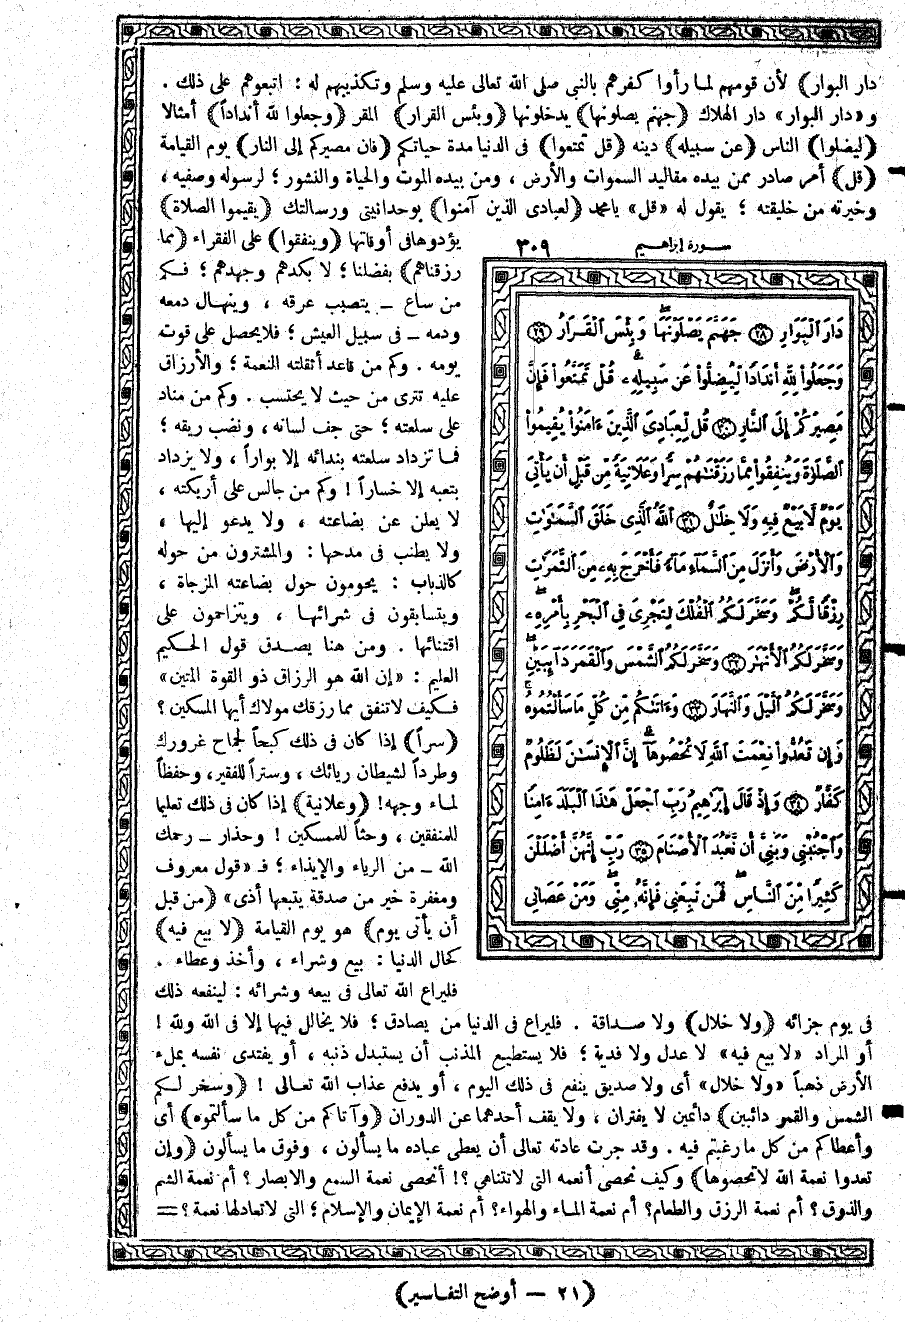 دار البوار) لأن قومهم لما رأوا كفرهم بالنبي صلى الله تعالى عليه وسلم وتكذيبهم له : اتبعوهم على ذلك .
و «دار البوار» دار الهلاك (جهنم يصلونها) يدخلونها (وبئس القرار) المقر (وجعلوا لله أنداداً) أمثالا
(ليضلوا) الناس (عن سبيله) دينه (قل تمتعوا) فى الدنيا مدة حياتكم (فان مصيركم إلى النار) يوم القيامة
(قل) أمر صادر ممن بيده مقاليد السموات والأرض ، ومن بيده الموت والحياة والنشور ؛ لرسوله وصفيه ،
وخيرته من خليقته ؛ يقول له «قل» يامحمد (لعبادى الذين آمنوا) بوحدانيتى ورسالتك (يقيموا الصلاة)
يؤدوها فى أوقاتها (وينفقوا) على الفقراء (مما
رزقناهم) بفضلنا ؛ لا بكدهم وجهدهم ؛ فكم
من ساع ـ يتصبب عرقه ، وينهال دمعه
ودمه ـ فى سبيل العيش ؛ فلا يحصل على قوت
يومه . وكم من قاعد أثقلته النعمة ؛ والأرزاق
عليه تترى من حيث لا يحتسب . وكم من مناد
على سلعته ؛ حتى جف لسانه ، ونضب ريقه ؛
فما تزداد سلعته بندائه إلا بواراً ، ولا يزداد
بتعبه إلا خساراً ! وكم من جالس على أريكته ،
لا يعلن عن بضاعته ، ولا يدعو إليها ،
ولا يطنب فى مدحها : والمشترون من حوله
كالذباب : يحومون حول بضاعته المزجاة ،
ويتسابقون فى شرائها ، ويتزاحمون على
اقتنائها . ومن هنا يصدق قول الحكيم
العليم : «إن الله هو الرزاق ذو القوة المتين»
فكيف لا تنفق مما رزقك مولاك أيها المسكين ؟
(سراً) إذا كان فى ذلك كبحاً لجماح غرورك
وطرداً لشيطان ريائك ، وستراً للفقير ، وحفظاً
لماء وجهه! (وعلانية) إذا كان فى ذلك تعليما
للمنفقين ، وحثاً للممسكين ! وحذار ـ رحمك
الله ـ من الرياء والإيذاء ؛ فـ «قول معروف
ومغفرة خير من صدقة يتبعها أذى» (من قبل
أن يأتى يوم) هو يوم القيامة (لا بيع فيه)
كحال الدنيا : بيع وشراء ، وأخذ وعطاء .
فليراع الله تعالى فى بيعه وشرائه : لينفعه ذلك
سورة إبراهيم ٣٠٩
دَارَ ٱلْبَوَارِ ﴿٢٨﴾ جَهَنَّمَ يَصْلَوْنَهَا وَبِئْسَ ٱلْقَرَارُ ﴿٢٩﴾
وَجَعَلُوا۟ لِلَّهِ أَندَادًا لِّيُضِلُّوا۟ عَن سَبِيلِهِۦ قُلْ تَمَتَّعُوا۟ فَإِنَّ
مَصِيرَكُمْ إِلَى ٱلنَّارِ ﴿٣٠﴾ قُل لِّعِبَادِىَ ٱلَّذِينَ ءَامَنُوا۟ يُقِيمُوا۟
ٱلصَّلَوٰةَ وَيُنفِقُوا۟ مِمَّا رَزَقْنَٰهُمْ سِرًّا وَعَلَانِيَةً مِّن قَبْلِ أَن يَأْتِىَ
يَوْمٌ لَّا بَيْعٌ فِيهِ وَلَا خِلَٰلٌ ﴿٣١﴾ ٱللَّهُ ٱلَّذِى خَلَقَ ٱلسَّمَٰوَٰتِ
وَٱلْأَرْضَ وَأَنزَلَ مِنَ ٱلسَّمَآءِ مَآءً فَأَخْرَجَ بِهِۦ مِنَ ٱلثَّمَرَٰتِ
رِزْقًا لَّكُمْ وَسَخَّرَ لَكُمُ ٱلْفُلْكَ لِتَجْرِىَ فِى ٱلْبَحْرِ بِأَمْرِهِۦ
وَسَخَّرَ لَكُمُ ٱلْأَنْهَٰرَ ﴿٣٢﴾ وَسَخَّرَ لَكُمُ ٱلشَّمْسَ وَٱلْقَمَرَ دَآئِبَيْنِ
وَسَخَّرَ لَكُمُ ٱلَّيْلَ وَٱلنَّهَارَ ﴿٣٣﴾ وَءَاتَىٰكُم مِّن كُلِّ مَا سَأَلْتُمُوهُ
وَإِن تَعُدُّوا۟ نِعْمَتَ ٱللَّهِ لَا تُحْصُوهَآ إِنَّ ٱلْإِنسَٰنَ لَظَلُومٌ
كَفَّارٌ ﴿٣٤﴾ وَإِذْ قَالَ إِبْرَٰهِيمُ رَبِّ ٱجْعَلْ هَٰذَا ٱلْبَلَدَ ءَامِنًا
وَٱجْنُبْنِى وَبَنِىَّ أَن نَّعْبُدَ ٱلْأَصْنَامَ ﴿٣٥﴾ رَبِّ إِنَّهُنَّ أَضْلَلْنَ
كَثِيرًا مِّنَ ٱلنَّاسِ فَمَن تَبِعَنِى فَإِنَّهُۥ مِنِّى وَمَنْ عَصَانِى
فى يوم جزائه (ولا خلال) ولا صداقة . فليراع فى الدنيا من يصادق ؛ فلا يخالل فيها إلا فى الله ولله !
أو المراد «لا بيع فيه» لا عدل ولا فدية ؛ فلا يستطيع المذنب أن يستبدل ذنبه ، أو يفتدى نفسه بملء
الأرض ذهباً «ولا خلال» أى ولا صديق ينفع فى ذلك اليوم ، أو يدفع عذاب الله تعالى ! (وسخر لكم
الشمس والقمر دائبين) دائمين لا يفتران ، ولا يقف أحدهما عن الدوران (وآتاكم من كل ما سألتموه) أى
وأعطاكم من كل ما رغبتم فيه . وقد جرت عادته تعالى أن يعطى عباده ما يسألون ، وفوق ما يسألون (وإن
تعدوا نعمة الله لا تحصوها) وكيف نحصى أنعمه التى لا تتناهى ؟! أنحصى نعمة السمع والابصار ؟ أم نعمة الشم
والذوق ؟ أم نعمة الرزق والطعام؟ أم نعمة الماء والهواء؟ أم نعمة الإيمان والإسلام ؛ التى لا تعادلها نعمة ؟ =
(٢١ — أوضح التفاسير)